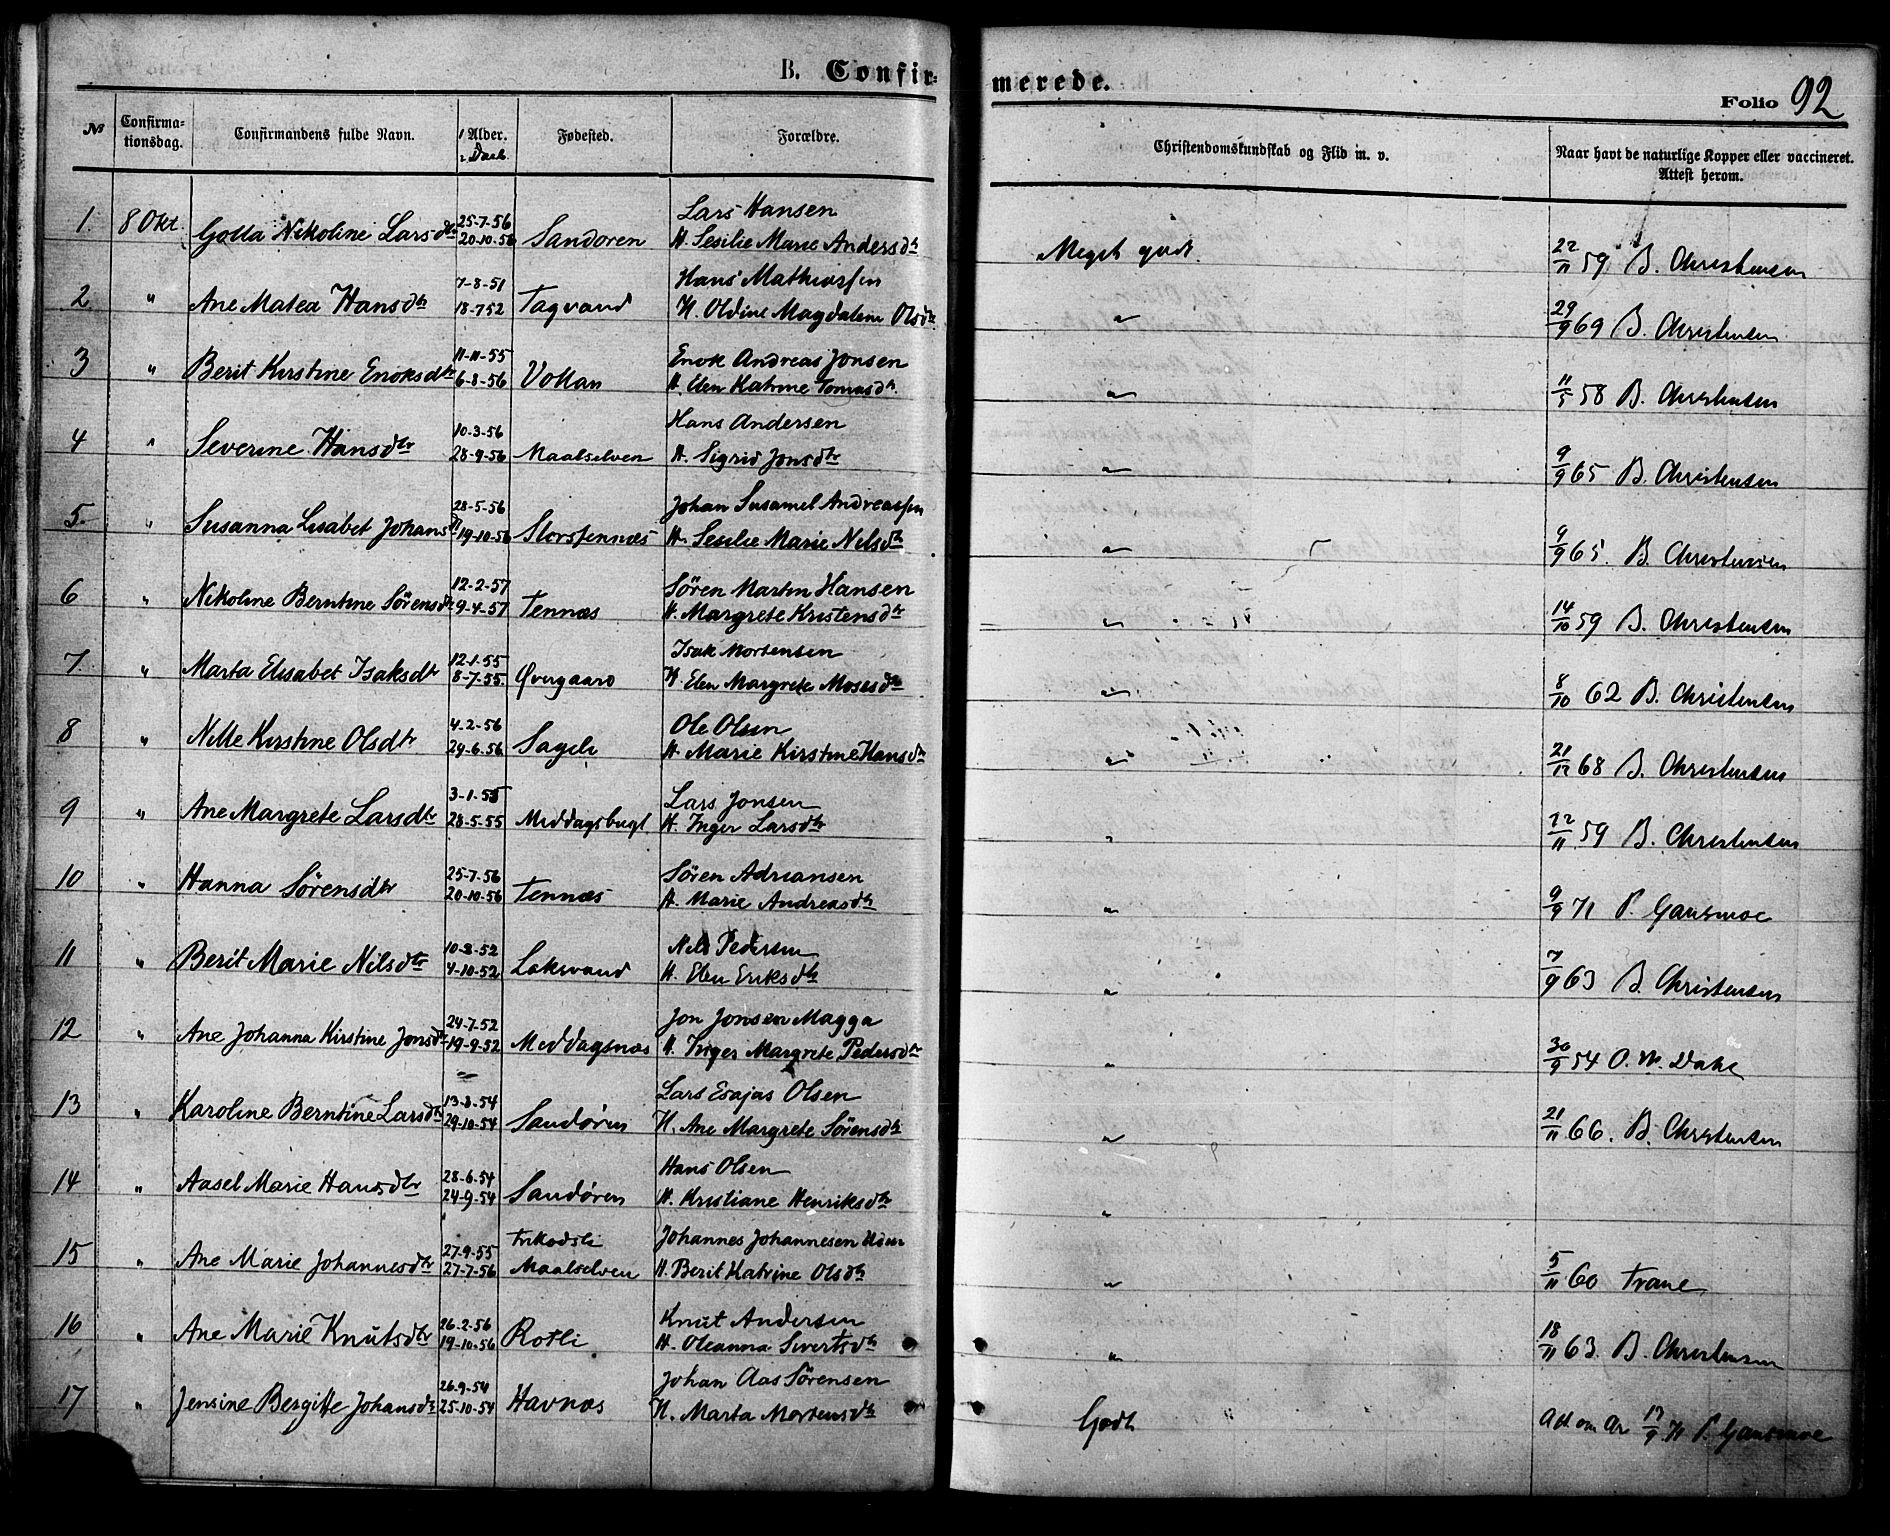 B. Confir-
merede.
Folio 92
No
Confirma-
tionsdag.
Confirmandens fulde Navn.
1 Alder.
2 Daab.
Fødested.
Forældre.
Christendomskundskab og Flid m. v.
Naar havt de naturlige Kopper eller vaccineret.
Attest herom.
1. 8 Okt. Golla Nikoline Larsdtr 25-7-56 20-10-56 Sandøren Lars Hansen
H. Sesilie Marie Andersdtr Meget godt. 22/11 59 B. Christensen
2 " Ane Matea Hansdtr 7-8-51 18-7 52 Tagvand Hans Mathiassen
H. Oldine Magdalena Olsdtr " 29/9 69 B. Christensen
3 " Berit Kirstine Enoksdtr 11-11-55 6-8-56 Vollan Enok Andreas Jonsen
H. Elen Katrine Tomasdtr. " 11/5 58 B. Christensen
4 " Severine Hansdtr 10-3-56 28-9-56 Maalselven Hans Andersen
H. Sigrid Jonsdtr " 9/9 65 B. Christensen
5. " Susanna Lisabet Johansdtr 28-5-56 19-10-56 Storstennæs Johan Susamel Andreassen
H. Sesilie Marie Nilsdtr " 9/9 65. B. Christensen
6 " Nikoline Berntine Sørensdtr 12-2-57 9-4-57 Tennæs Sören Martin Hansen
H. Margrete Kristensdtr " 14/10 59 B. Christensen
7. " Marta Elisabet Isaksdtr 12-1-55 8-7-55. Øvergaard Isak Mortensen
H Elen Margrete Mosesdtr " 8/10 62 B. Christensen
8 " Nille Kirstine Olsdtr 4-2-56 29-6-56 Sageli Ole Olsen
H. Marie Kirstine Hansdtr " 21/12 68 B. Christensen
9 " Ane Margrete Larsdtr 3-1-55 28-5-55 Meddagsbugt Lars Jonsen
H. Inger Larsdtr " 22/11 59 B. Christensen
10 " Hanna Sörensdtr 25-7-56 20-10-56 Tennæs Sören Adriansen
H. Marie Andreasdtr " 9/9 71 P. Gansmoe
11 " Berit Marie Nilsdtr 10-8-52 4-10-52 Laksvand Nils Pedersen
H. Elen Eriksdtr " 7/9 63 B. Christensen
12 " Ane Johanna Kirstine Jonsdtr 24-7-52 19-9-52 Meddagsnæs Jon Jonsen Magga
H. Inger Margrete Pedersdtr " 30/9 54 O. W. Dahl
13 " Karoline Berntine Larsdtr 13-8-54 29-10-54 Sandøren Lars Esajas Olsen
H. Ane Margrete Sørensdtr " 21/11 66. B. Christensen
14 " Aasel Marie Hansdtr 28-6-54 24-9-54 Sandøren Hans Olsen
H. Kristiane Henriksdtr "
15 " Ane Marie Johannesdtr 27-9-55 27-7-56 Maalselven Johannes Johannesen
H. Berit Katrine Olsdtr " 5/11 60 Trane
16 " Ane Marie Knutsdtr 26-2-56 19-10-56 Rotli Knut Andersen
H. Oleanna Sivertsdtr " 18/11 63. B. Christensen
17 " Jensine Bergitte Johansdtr 26-9-54 25-10-54 Havnæs Johan Aas Sörensen
H. Marta Mortensdtr Godt Att om Ar 17/9 71 P. Gansmoe